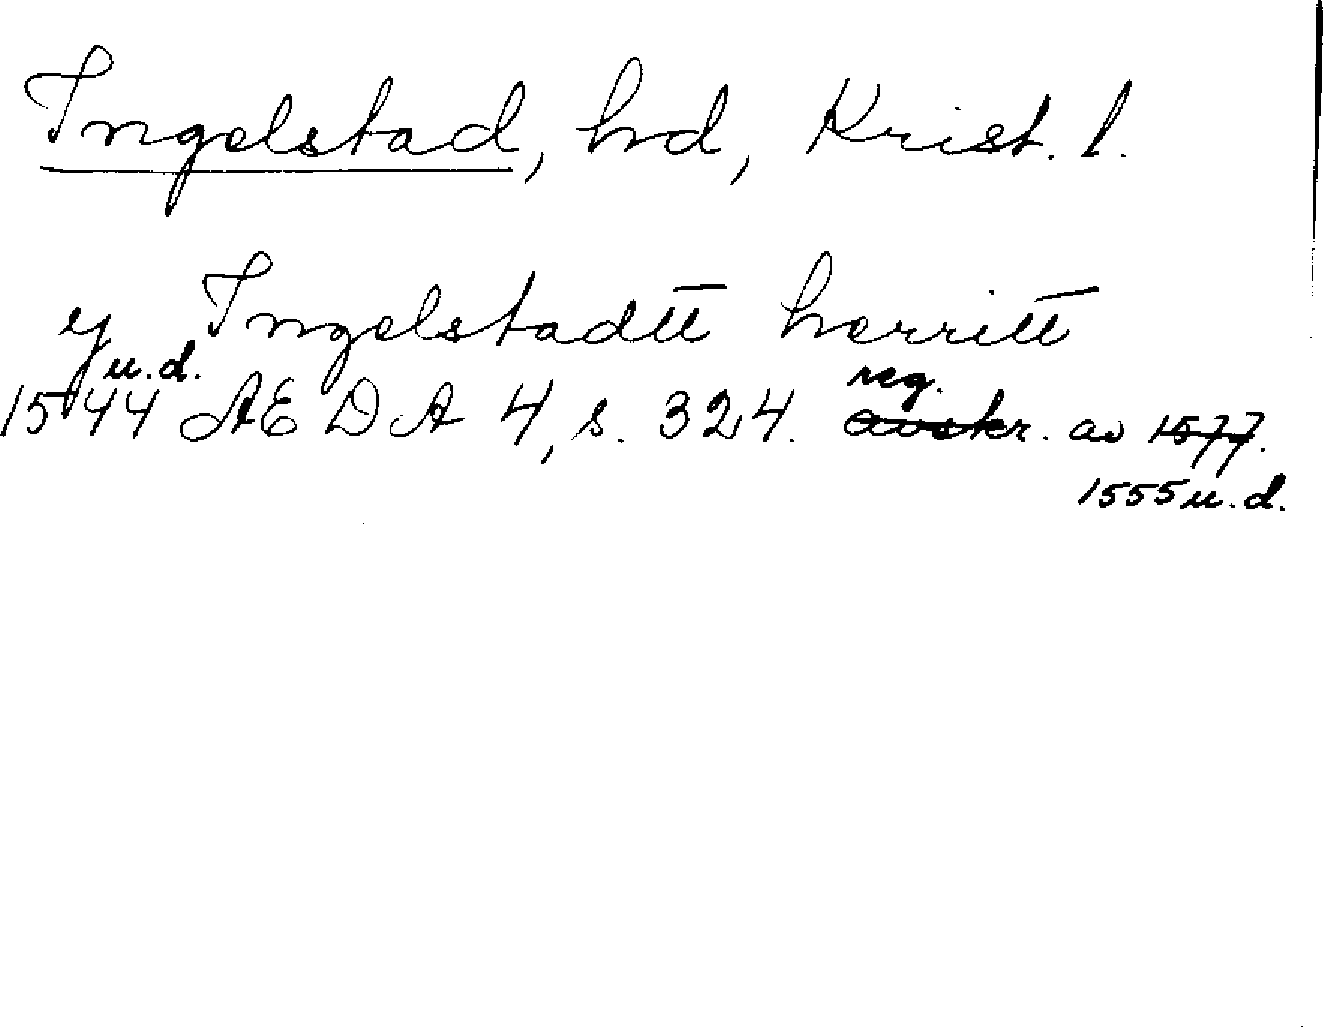 Ingelstad, hd, Krist. l.
y Ingelstadtt herritt
u.d.
reg.
1544 AEDA 4, s. 324. avskr. av 1577.
1555 u.d.